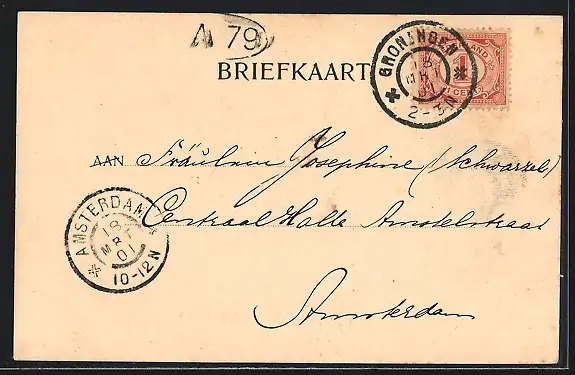 A 79
BRIEFKAART
GRONINGEN
18
MRT
01
2-3N
LAND
1
1 CENT
AAN Fräulein Josephine (Schwarzel)
Centraal Halle Amstelstraat
AMSTERDAM
18
MRT
01
10-12N
Amsterdam